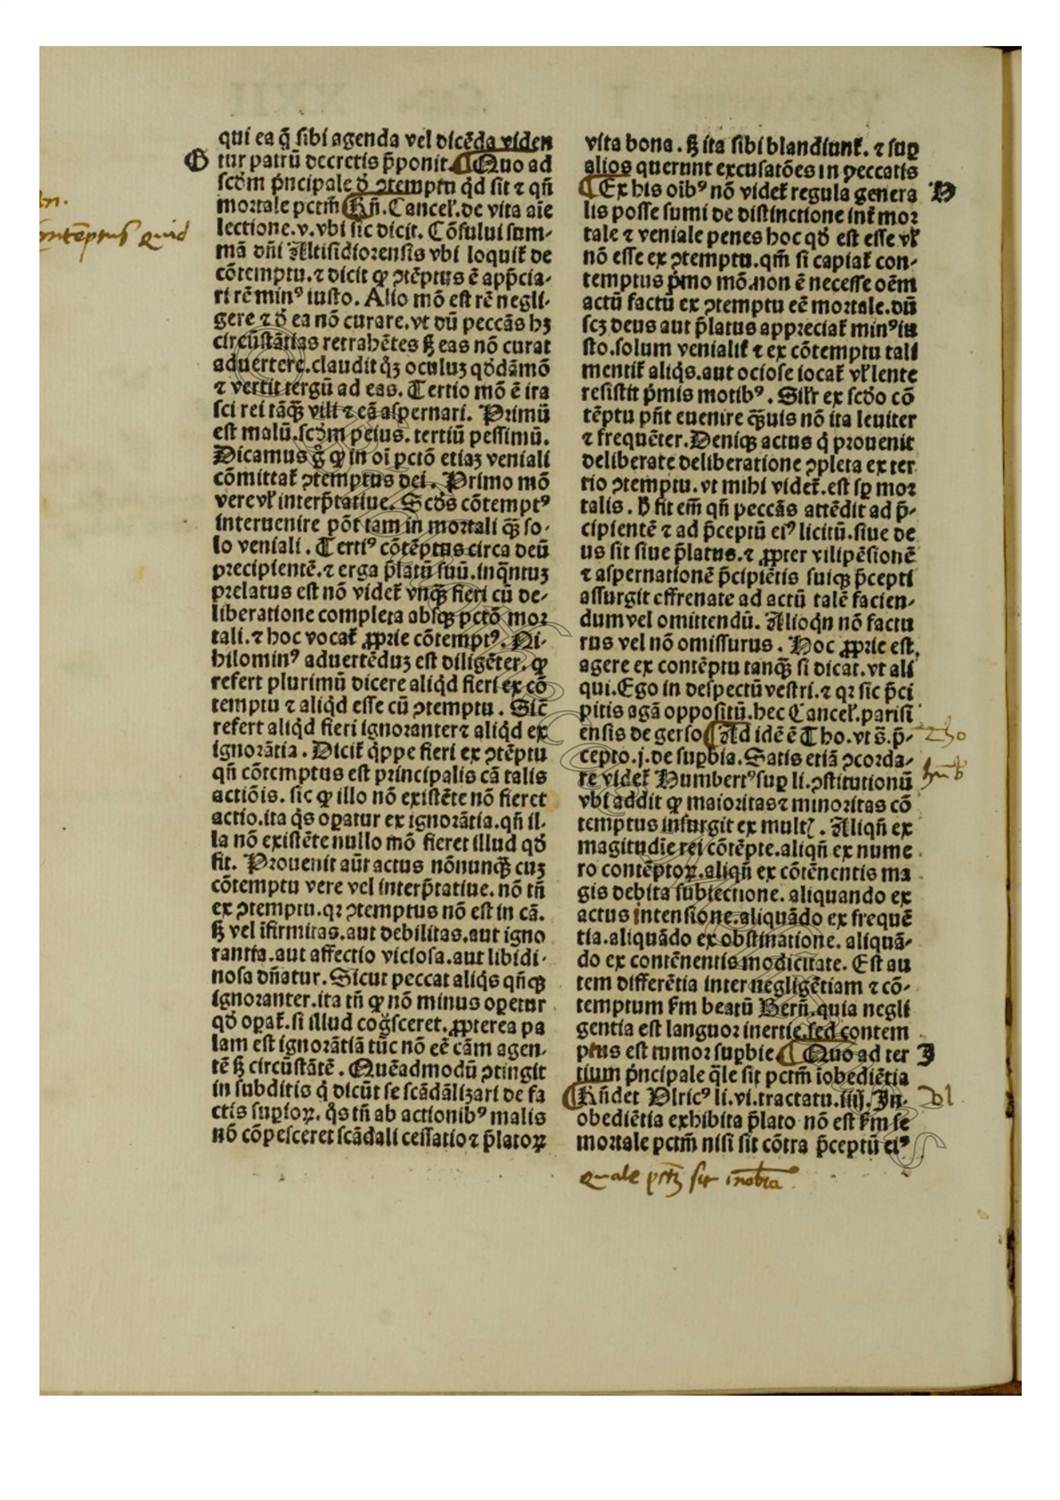 qui ea q̄ sibi agenda vel dicēda viden
G
tur patrū decretis p̄ponit. ¶ Quo ad
scḋm p̄ncipale ḋ ꝯtemptu qḋ sit ⁊ qn̄
mortale pctm̄ ¶ Rn̄. Cancel̄. de vita aīe
lectione. v. vbi sic dicit. Cōsului sum-
mā dn̄i Altisidiorensis vbi loquit᷑ de
cōtemptu. ⁊ dicit ꝙ ꝯtēptus ē app̄cia-
ri rē minꝰ iusto. Alio mō est rē negli-
gere ⁊ ḋ ea nō curare. vt dū peccās hꝫ
circūstātias retrahētes sꝫ eas nō curat
aduertere. claudit qͥꝫ oculuꝫ qḋdāmō
⁊ vertit tergū ad eas. Tertio mō ē ira
sci rei tāqꝫ vili ⁊ eā aspernari. Primū
est malū. scḋm peius. tertiū pessimū.
Dicamus g̊ ꝙ in oī pctō etiaꝫ veniali
cōmittat᷑ ꝯtemptus dei. Primo mō
vere vl̓ interp̄tatiue. Scḋs cōtemptꝰ
interuenire pōt tam in mortali qꝫ̄ so-
lo veniali. Tertiꝰ cōtēptus circa deū
precipientē. ⁊ erga p̄latū suū. inqͣntuꝫ
prelatus est nō videt᷑ vnqꝫ̄ fieri cū de-
liberatione completa absqꝫ pctō mor
tali. ⁊ hoc vocat᷑ ꝓprie cōtemptꝰ. Ni-
hilominꝰ aduertēduꝫ est diligēter. ꝙ
refert plurimū dicere aliqͥd fieri ex cō
temptu ⁊ aliqͥd esse cū ꝯtemptu. Sic̄
refert aliqͥd fieri ignoranter ⁊ aliqͥd ex
ignorātia. Dicit᷑ qͥppe fieri ex ꝯtēptu
qn̄ cōtemptus est principalis cā talis
actiōis. sic ꝙ illo nō existēte nō fieret
actio. ita qͥs oꝑatur ex ignorātia. qn̄ il-
la nō existēte nullo mō fieret illud qḋ
fit. Prouenit aūt actus nōnunqꝫ̄ cuꝫ
cōtemptu vere vel interp̄tatiue. nō tn̄
ex ꝯtemptu. qꝛ ꝯtemptus nō est in cā.
sꝫ vel īfirmitas. aut debilitas. aut igno
rantia. aut affectio viciosa. aut libidi-
nosa dn̄atur. Sicut peccat aliqͥs qn̄qꝫ
ignoranter. ita tn̄ ꝙ nō minus oꝑetur
qḋ oꝑat᷑. si illud cog̊sceret. ꝓpterea pa
lam est ignorātiā tūc nō eē cām agen-
tē sꝫ circūstātē. Quēadmodū ꝯtingit
in subditis qͥ dicūt se scādalizari de fa
ctis superioꝝ. qͥs tn̄ ab actionibꝰ malis
nō cōpesceret scādali cessatio ⁊ p̄latoꝝ
contēptus quid
vita bona. sꝫ ita sibi blandiunt᷑. ⁊ suꝑ
alios querunt excusatōes in peccatis
¶ Ex his oībꝰ nō videt᷑ regula genera
H
lis posse sumi de distinctione int᷑ mor
tale ⁊ veniale penes hoc qḋ est esse vl̓
nō esse ex ꝯtemptu. qm̄ si capiat᷑ con-
temptus pͥmo mō. non ē necesse oēm
actū factū ex ꝯtemptu eē mortale. dū
scꝫ deus aut p̄latus appreciat᷑ minꝰ iu
sto. solum venialit᷑ ⁊ ex cōtemptu tali
mentit᷑ aliqͥs. aut ociose iocat᷑ vl̓ lente
resistit pͥmis motibꝰ. Sil̓r ex scḋo cō
tēptu pn̄t euenire qꝫ̄uis nō ita leuiter
⁊ frequēter. Deniqꝫ actus qͥ prouenit
deliberate deliberatione ꝯpleta ex ter
tio ꝯtemptu. vt mihi videt᷑. est sꝑ mor
talis. ḋ fit em̄ qn̄ peccās attēdit ad p̄-
cipientē ⁊ ad p̄ceptū eiꝰ licitū. siue de
us sit siue p̄latus. ⁊ ꝓpter vilipēsionē
⁊ aspernationē p̄cipiētis suiqꝫ p̄cepti
assurgit effrenate ad actū talē facien-
dum vel omittendū. Alioqͥn nō factu
rus vel nō omissurus. Hoc ꝓprie est.
agere ex contēptu tanqꝫ̄ si dicat. vt ali
qui. Ego in despectū vestri. ⁊ qꝛ sic p̄ci
pitis agā oppositū. hec Cancel̄. parisi
ensis de gerso ¶ Ad idē ē Tho. vt s̄. p̄-
Tho
cepto. j. de suꝑbia. Satis etiā ꝯcorda-
re videt᷑ Humbertꝰ suꝑ li. ꝯstitutionū
humb
vbi addit ꝙ maioritas ⁊ minoritas cō
temptus insurgit ex multꝭ. Aliqn̄ ex
magitudie rei cōtēpte. aliqn̄ ex nume
ro contēptoꝝ. aliqn̄ ex cōtēnentis ma
gis debita subiectione. aliquando ex
actus intensione. aliquādo ex frequē
tia. aliquādo ex obstinatione. aliquā-
do ex contēnentis modicitate. Est au
tem differētia inter negligētiam ⁊ cō-
temptum ẜm beatū Bern̄. quia negli
gentia est languor inertie. sed contem
ptus est tumor suꝑbie ¶ Quo ad ter
I
tium p̄ncipale qͣle sit pctm̄ īobediētia
¶ Rn̄det Vlricꝰ li. vi. tractatu. iiij. In-
Vl
obediētia exhibita p̄lato nō est ẜm se
mortale pctm̄ nisi sit cōtra p̄ceptū eiꝰ
quale pctꝫ sit inobia